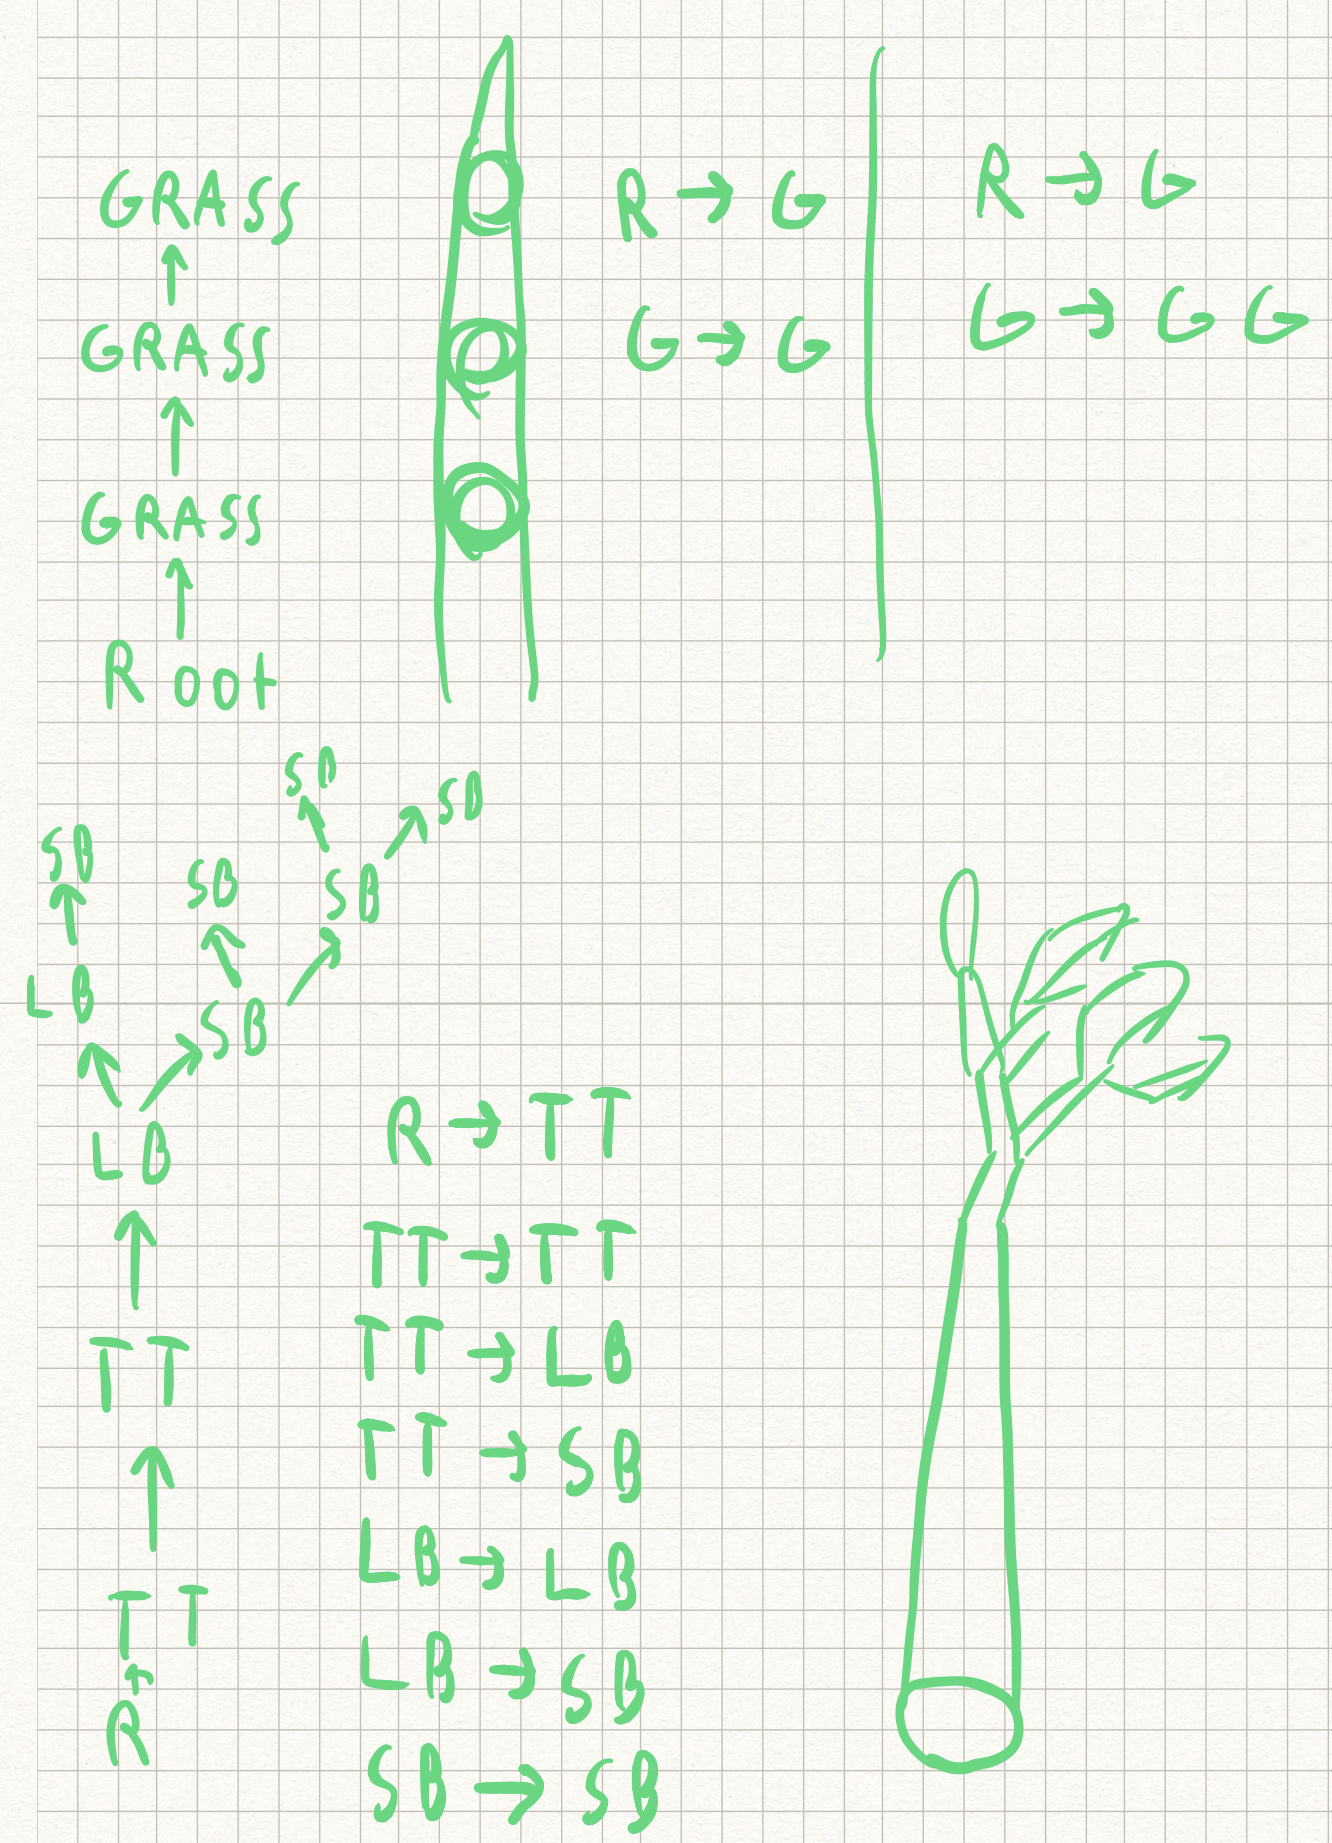 GRASS
GRASS
GRASS
Root
R → G
G → G
R → G
G → G G
SB
SB
SB
SB
SB
LB
SB
LB
TT
TT
R
R → TT
TT → TT
TT → LB
TT → SB
LB → LB
LB → SB
SB → SB